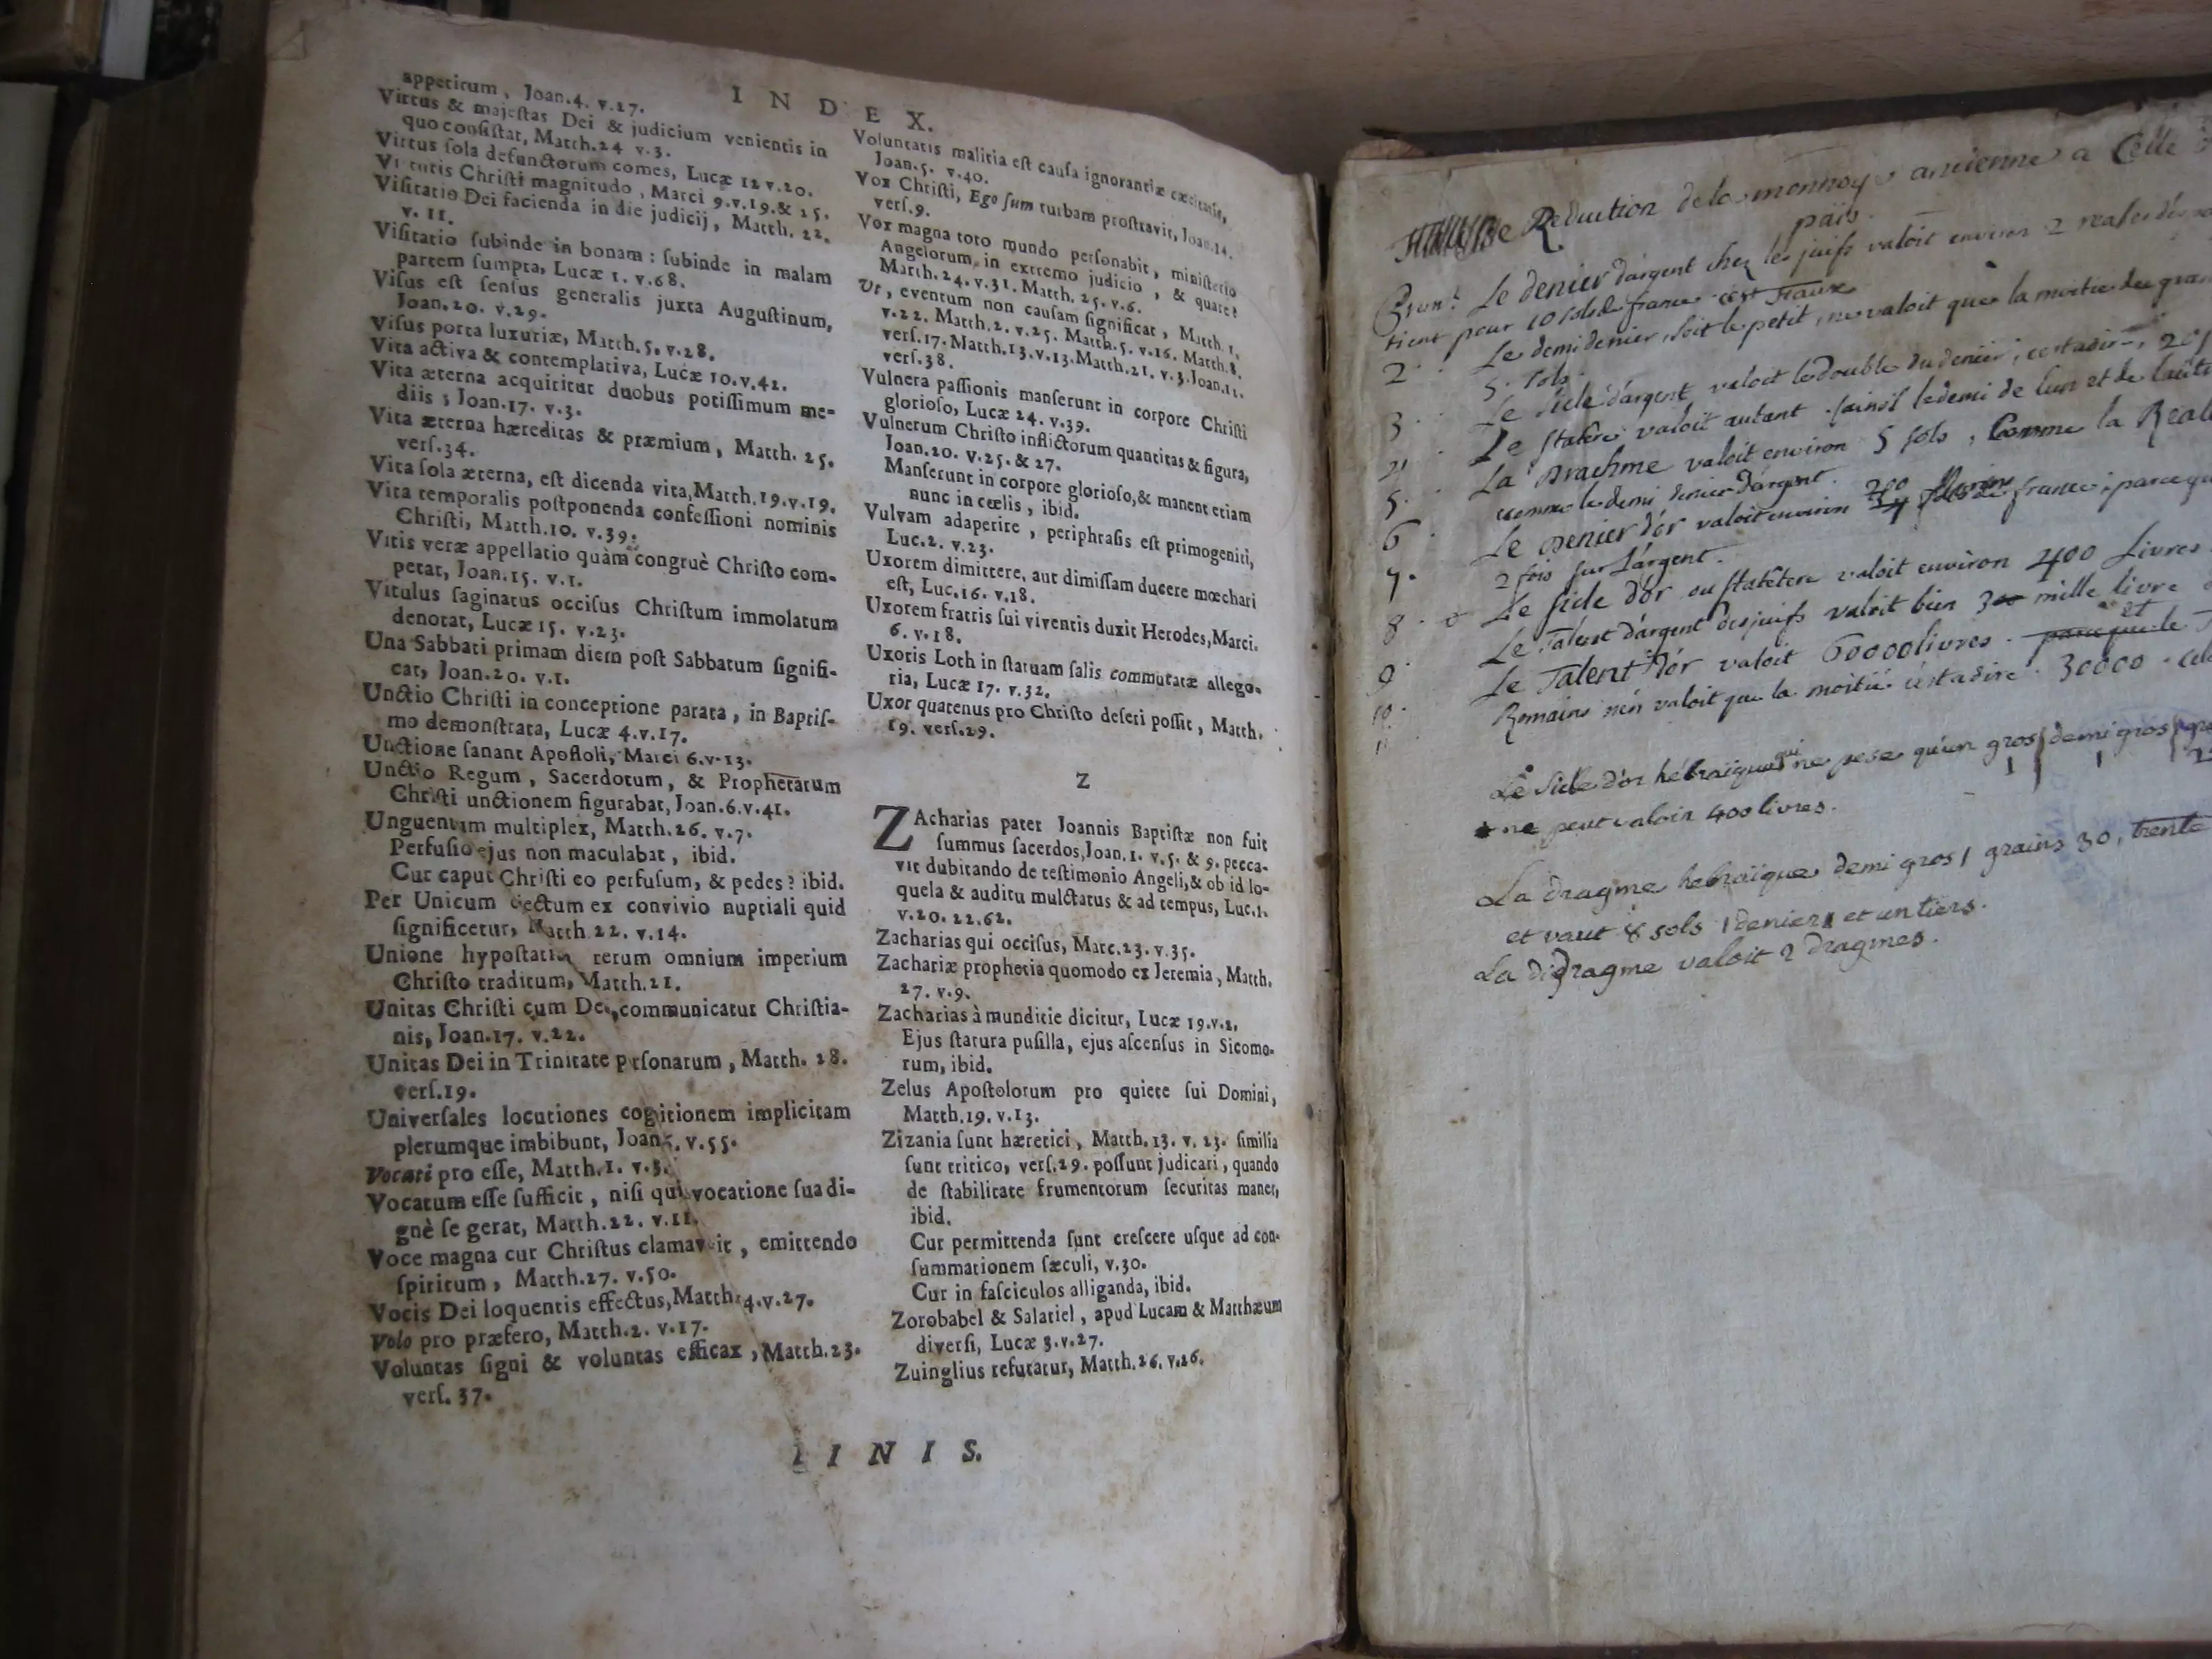 INDEX.
appetitum, Joan.4. v.27.
Virtus & majeſtas Dei & judicium venientis in
quo conſiſtat, Matth.24 v.3.
Virtus ſola defunctorum comes, Lucæ 12 v.20.
Virtutis Chriſti magnitudo, Marci 9.v.19.& 25.
Viſitatio Dei facienda in die judicij, Matth. 22.
v. 11.
Viſitatio ſubinde in bonam: ſubinde in malam
partem ſumpta, Lucæ 1. v.68.
Viſus eſt ſenſus generalis juxta Auguſtinum,
Joan.20. v.29.
Viſus porta luxuriæ, Matth.5. v.28.
Vita activa & contemplativa, Lucæ 10.v.42.
Vita æterna acquiritur duobus potiſſimum me-
diis; Joan.17. v.3.
Vita æterna hæreditas & præmium, Matth. 25.
verſ.34.
Vita ſola æterna, eſt dicenda vita, Matth.19.v.19.
Vita temporalis poſtponenda confeſſioni nominis
Chriſti, Matth.10. v.39.
Vitis veræ appellatio quàm congruè Chriſto com-
petat, Joan.15. v.1.
Vitulus ſaginatus occiſus Chriſtum immolatum
denotat, Lucæ 15. v.23.
Una Sabbati primam diem poſt Sabbatum ſignifi-
cat, Joan.20. v.1.
Unctio Chriſti in conceptione parata, in Baptiſ-
mo demonſtrata, Lucæ 4.v.17.
Unctione ſanant Apoſtoli, Marci 6.v.13.
Unctio Regum, Sacerdotum, & Prophetarum
Chriſti unctionem figurabat, Joan.6.v.41.
Unguentum multiplex, Matth.26. v.7.
Perfuſio ejus non maculabat, ibid.
Cur caput Chriſti eo perfuſum, & pedes? ibid.
Per Unicum ejectum ex convivio nuptiali quid
ſignificetur, Matth 22. v.14.
Unione hypoſtatica rerum omnium imperium
Chriſto traditum, Matth.21.
Unitas Chriſti cum Deo, communicatur Chriſtia-
nis, Joan.17. v.22.
Unitas Dei in Trinitate perſonarum, Matth. 28.
verſ.19.
Univerſales locutiones cogitionem implicitam
plerumque imbibunt, Joan. v.55.
Vocari pro eſſe, Matth.1. v.3.
Vocatum eſſe ſufficit, niſi qui vocatione ſua di-
gnè ſe gerat, Matth.22. v.11.
Voce magna cur Chriſtus clamaverit, emittendo
ſpiritum, Matth.27. v.50.
Vocis Dei loquentis effectus, Matth.4.v.27.
Volo pro præfero, Matth.2. v.17.
Voluntas ſigni & voluntas efficax, Matth.23.
verſ. 37.
Voluntatis malitia eſt cauſa ignorantiæ cæcitatis,
Joan.5. v.40.
Vox Chriſti, Ego ſum turbam proſtravit, Joan.14.
verſ.9.
Vox magna toto mundo perſonabit, miniſterio
Angelorum, in extremo judicio, & quare?
Matth.24. v.31. Matth. 25. v.6.
Ut, eventum non cauſam ſignificat, Matth. 1.
v.22. Matth.2. v.25. Matth.5. v.16. Matth.8.
verſ.17. Matth.13.v.13.Matth.21. v.3.Joan.11.
verſ.38.
Vulnera paſſionis manſerunt in corpore Chriſti
glorioſo, Lucæ 24. v.39.
Vulnerum Chriſto inflictorum quantitas & figura,
Joan.20. v.25. & 27.
Manſerunt in corpore glorioſo, & manent etiam
nunc in cœlis, ibid.
Vulvam adaperire, periphraſis eſt primogeniti,
Luc.2. v.23.
Uxorem dimittere, aut dimiſſam ducere mœchari
eſt, Luc.16. v.18.
Uxorem fratris ſui viventis duxit Herodes, Marci.
6. v.18.
Uxoris Loth in ſtatuam ſalis commutatæ allego-
ria, Lucæ 17. v.32.
Uxor quatenus pro Chriſto deſeri poſſit, Matth.
19. verſ.29.
Z
ZAcharias pater Joannis Baptiſtæ non fuit
ſummus ſacerdos, Joan.1. v.5. & 9. pecca-
vit dubitando de teſtimonio Angeli, & ob id lo-
quela & auditu mulctatus & ad tempus, Luc.1.
v.20. 22.62.
Zacharias qui occiſus, Matt.23. v.35.
Zachariæ prophetia quomodo ex Jeremia, Matth.
27. v.9.
Zacharias à munditie dicitur, Lucæ 19.v.2.
Ejus ſtatura puſilla, ejus aſcenſus in Sicomo-
rum, ibid.
Zelus Apoſtolorum pro quiete ſui Domini,
Matth.19. v.13.
Zizania ſunt hæretici, Matth.13. v. 23. ſimilia
ſunt tritico, verſ.29. poſſunt judicari, quando
de ſtabilitate frumentorum ſecuritas manet,
ibid.
Cur permittenda ſunt creſcere uſque ad con-
ſummationem ſæculi, v.30.
Cur in faſciculos alliganda, ibid.
Zorobabel & Salatiel, apud Lucam & Matthæum
diverſi, Lucæ 3.v.27.
Zuinglius refutatur, Matth.26. v.26.
FINIS.
Reduction de la monnoye ancienne a Celle
païs.
Le denier d'argent chez les juifs valoit environ 2 reales
tient pour 10 sols de france c'est
2. Le demi denier, soit le petit, ne valoit que la moitie du gran
5. sols.
3. Le sicle d'argent valoit le double du denier, cestadire, 20
4. Le statere valoit autant. ainsi le demi de l'un et de l'autre
5. La Drachme valoit environ 5 sols, Comme la Reale
comme le demi denier d'argent.
6. Le Denier d'or valoit environ france, parcequ
7. 2 fois sur l'argent.
8. Le sicle d'or ou statere valoit environ 400 livres.
9. Le Talent d'argent des juifs valoit bien 3 mille livre
10. Le Talent d'or valoit 60000 livres. et parceque le
11. Romains n'en valoit que la moitié c'estadire. 30000.
Le Sicle d'or hébraique qui ne pese qu'un gros demi gros
ne peut valoir 400 livres.
La dragme hebraïque demi gros 1 grains 30, trente
et vaut 8 sols 1 denier et un tiers.
La didragme valoit 2 dragmes.